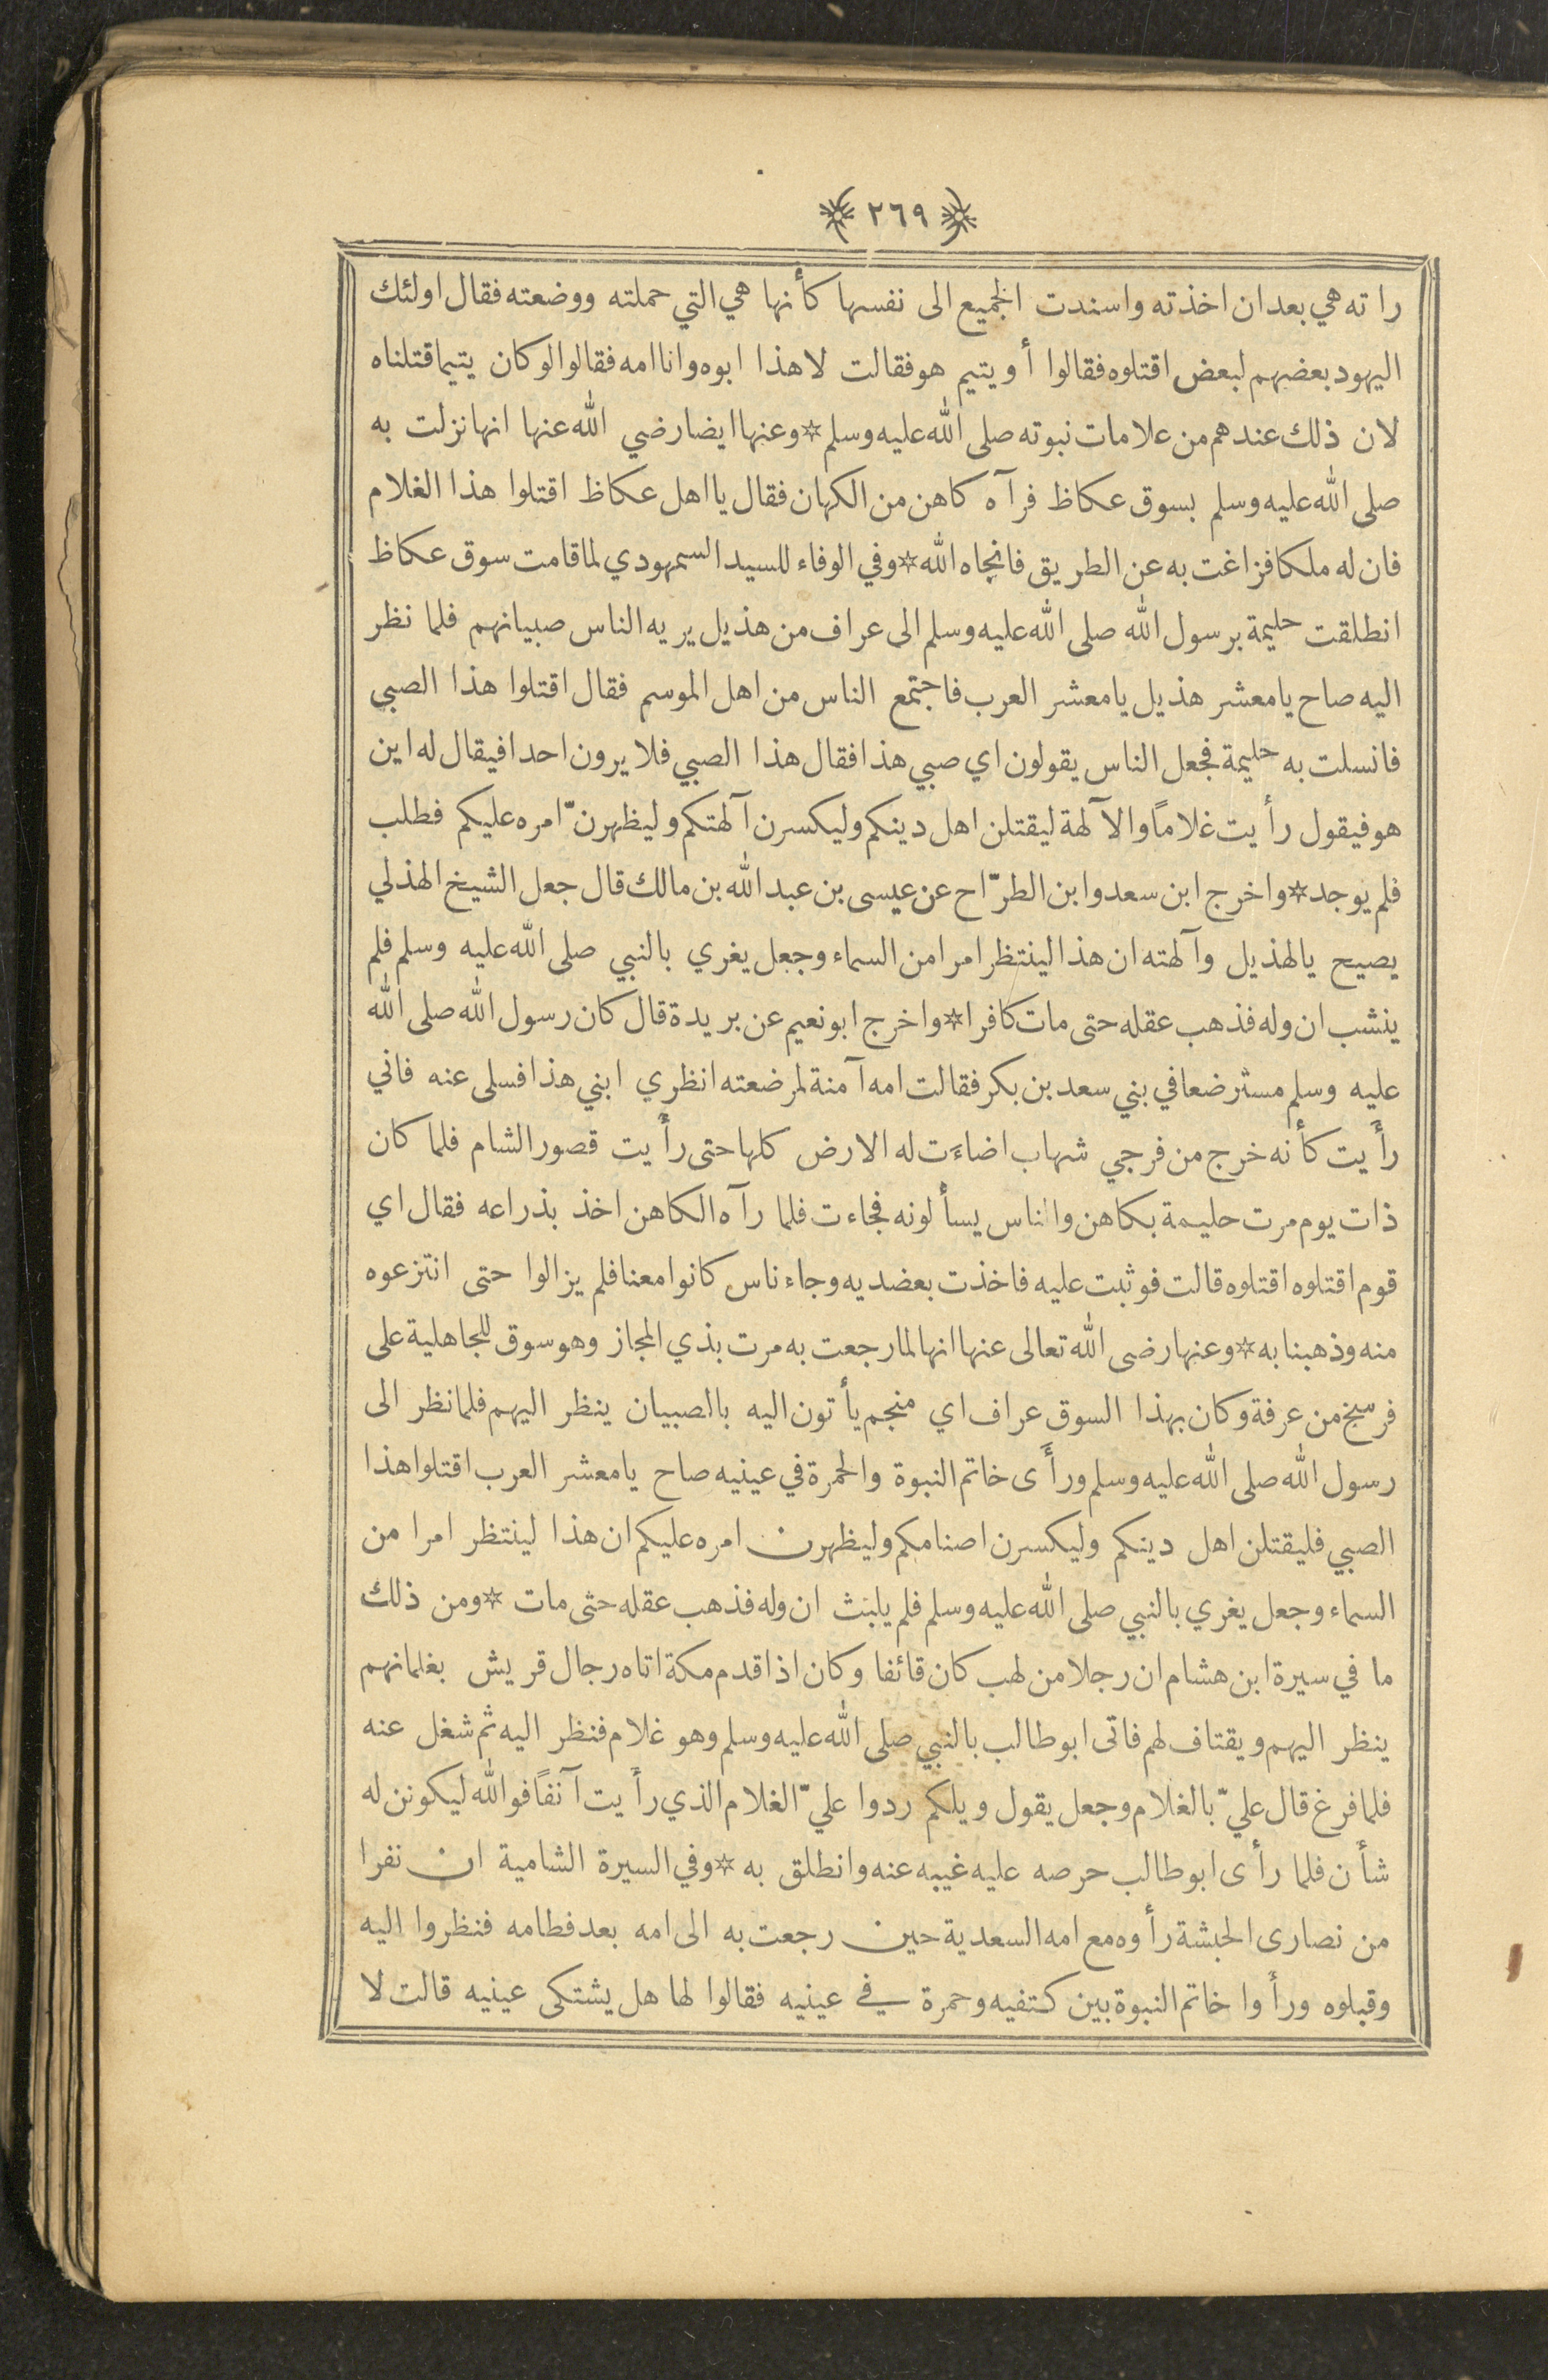 ٢٦٩
راته هي بعد ان اخذته واسندت الجميع الى نفسها كأنها هي التي حملته ووضعته فقال اولئك
اليهود بعضهم لبعض اقتلوه فقالوا أو يتيم هو فقالت لا هذا ابوه وانا امه فقالوا لو كان يتيما قتلناه
لان ذلك عندهم من علامات نبوته صلى الله عليه وسلم * وعنها ايضا رضي الله عنها انها نزلت به
صلى الله عليه وسلم بسوق عكاظ فرآه كاهن من الكهان فقال يا اهل عكاظ اقتلوا هذا الغلام
فان له ملكا فزاغت به عن الطريق فانجاه الله * وفي الوفاء للسيد السمهودي لما قامت سوق عكاظ
انطلقت حليمة برسول الله صلى الله عليه وسلم الى عراف من هذيل يريه الناس صبيانهم فلما نظر
اليه صاح يا معشر هذيل يا معشر العرب فاجتمع الناس من اهل الموسم فقال اقتلوا هذا الصبي
فانسلت به حليمة فجعل الناس يقولون اي صبي هذا فقال هذا الصبي فلا يرون احدا فيقال له اين
هو فيقول رأيت غلاماً والآلهة ليقتلن اهل دينكم وليكسرن آلهتكم وليظهرنّ امره عليكم فطلب
فلم يوجد * واخرج ابن سعد وابن الطرّاح عن عيسى بن عبد الله بن مالك قال جعل الشيخ الهذلي
يصيح يا لهذيل وآلهته ان هذا لينتظر امرا من السماء وجعل يغري بالنبي صلى الله عليه وسلم فلم
ينشب ان وله فذهب عقله حتى مات كافرا * واخرج ابو نعيم عن بريدة قال كان رسول الله صلى الله
عليه وسلم مسترضعا في بني سعد بن بكر فقالت امه آمنة لمرضعته انظري ابني هذا فسلى عنه فاني
رأَيت كأنه خرج من فرجي شهاب اضاءَت له الارض كلها حتى رأَيت قصور الشام فلما كان
ذات يوم مرت حليمة بكاهن والناس يسألونه فجاءت فلما رآه الكاهن اخذ بذراعه فقال اي
قوم اقتلوه اقتلوه قالت فوثبت عليه فاخذت بعضديه وجاء ناس كانوا معنا فلم يزالوا حتى انتزعوه
منه وذهبنا به * وعنها رضى الله تعالى عنها انها لما رجعت به مرت بذي المجاز وهو سوق للجاهلية على
فرسخ من عرفة وكان بهذا السوق عراف اي منجم يأتون اليه بالصبيان ينظر اليهم فلما نظر الى
رسول الله صلى الله عليه وسلم ورأَى خاتم النبوة والحمرة في عينيه صاح يا معشر العرب اقتلوا هذا
الصبي فليقتلن اهل دينكم وليكسرن اصنامكم وليظهرن امره عليكم ان هذا لينتظر امرا من
السماء وجعل يغري بالنبي صلى الله عليه وسلم فلم يلبث ان وله فذهب عقله حتى مات * ومن ذلك
ما في سيرة ابن هشام ان رجلا من لهب كان قائفا وكان اذا قدم مكة اتاه رجال قريش بغلمانهم
ينظر اليهم ويقتاف لهم فاتى ابو طالب بالنبي صلى الله عليه وسلم وهو غلام فنظر اليه ثم شغل عنه
فلما فرغ قال عليّ بالغلام وجعل يقول ويلكم ردوا عليّ الغلام الذي رأَيت آنفاً فوالله ليكونن له
شأن فلما رأى ابو طالب حرصه عليه غيبه عنه وانطلق به * وفي السيرة الشامية ان نفرا
من نصارى الحبشة رأوه مع امه السعدية حين رجعت به الى امه بعد فطامه فنظروا اليه
وقبلوه ورأَوا خاتم النبوة بين كتفيه وحمرة في عينيه فقالوا لها هل يشتكى عينيه قالت لا